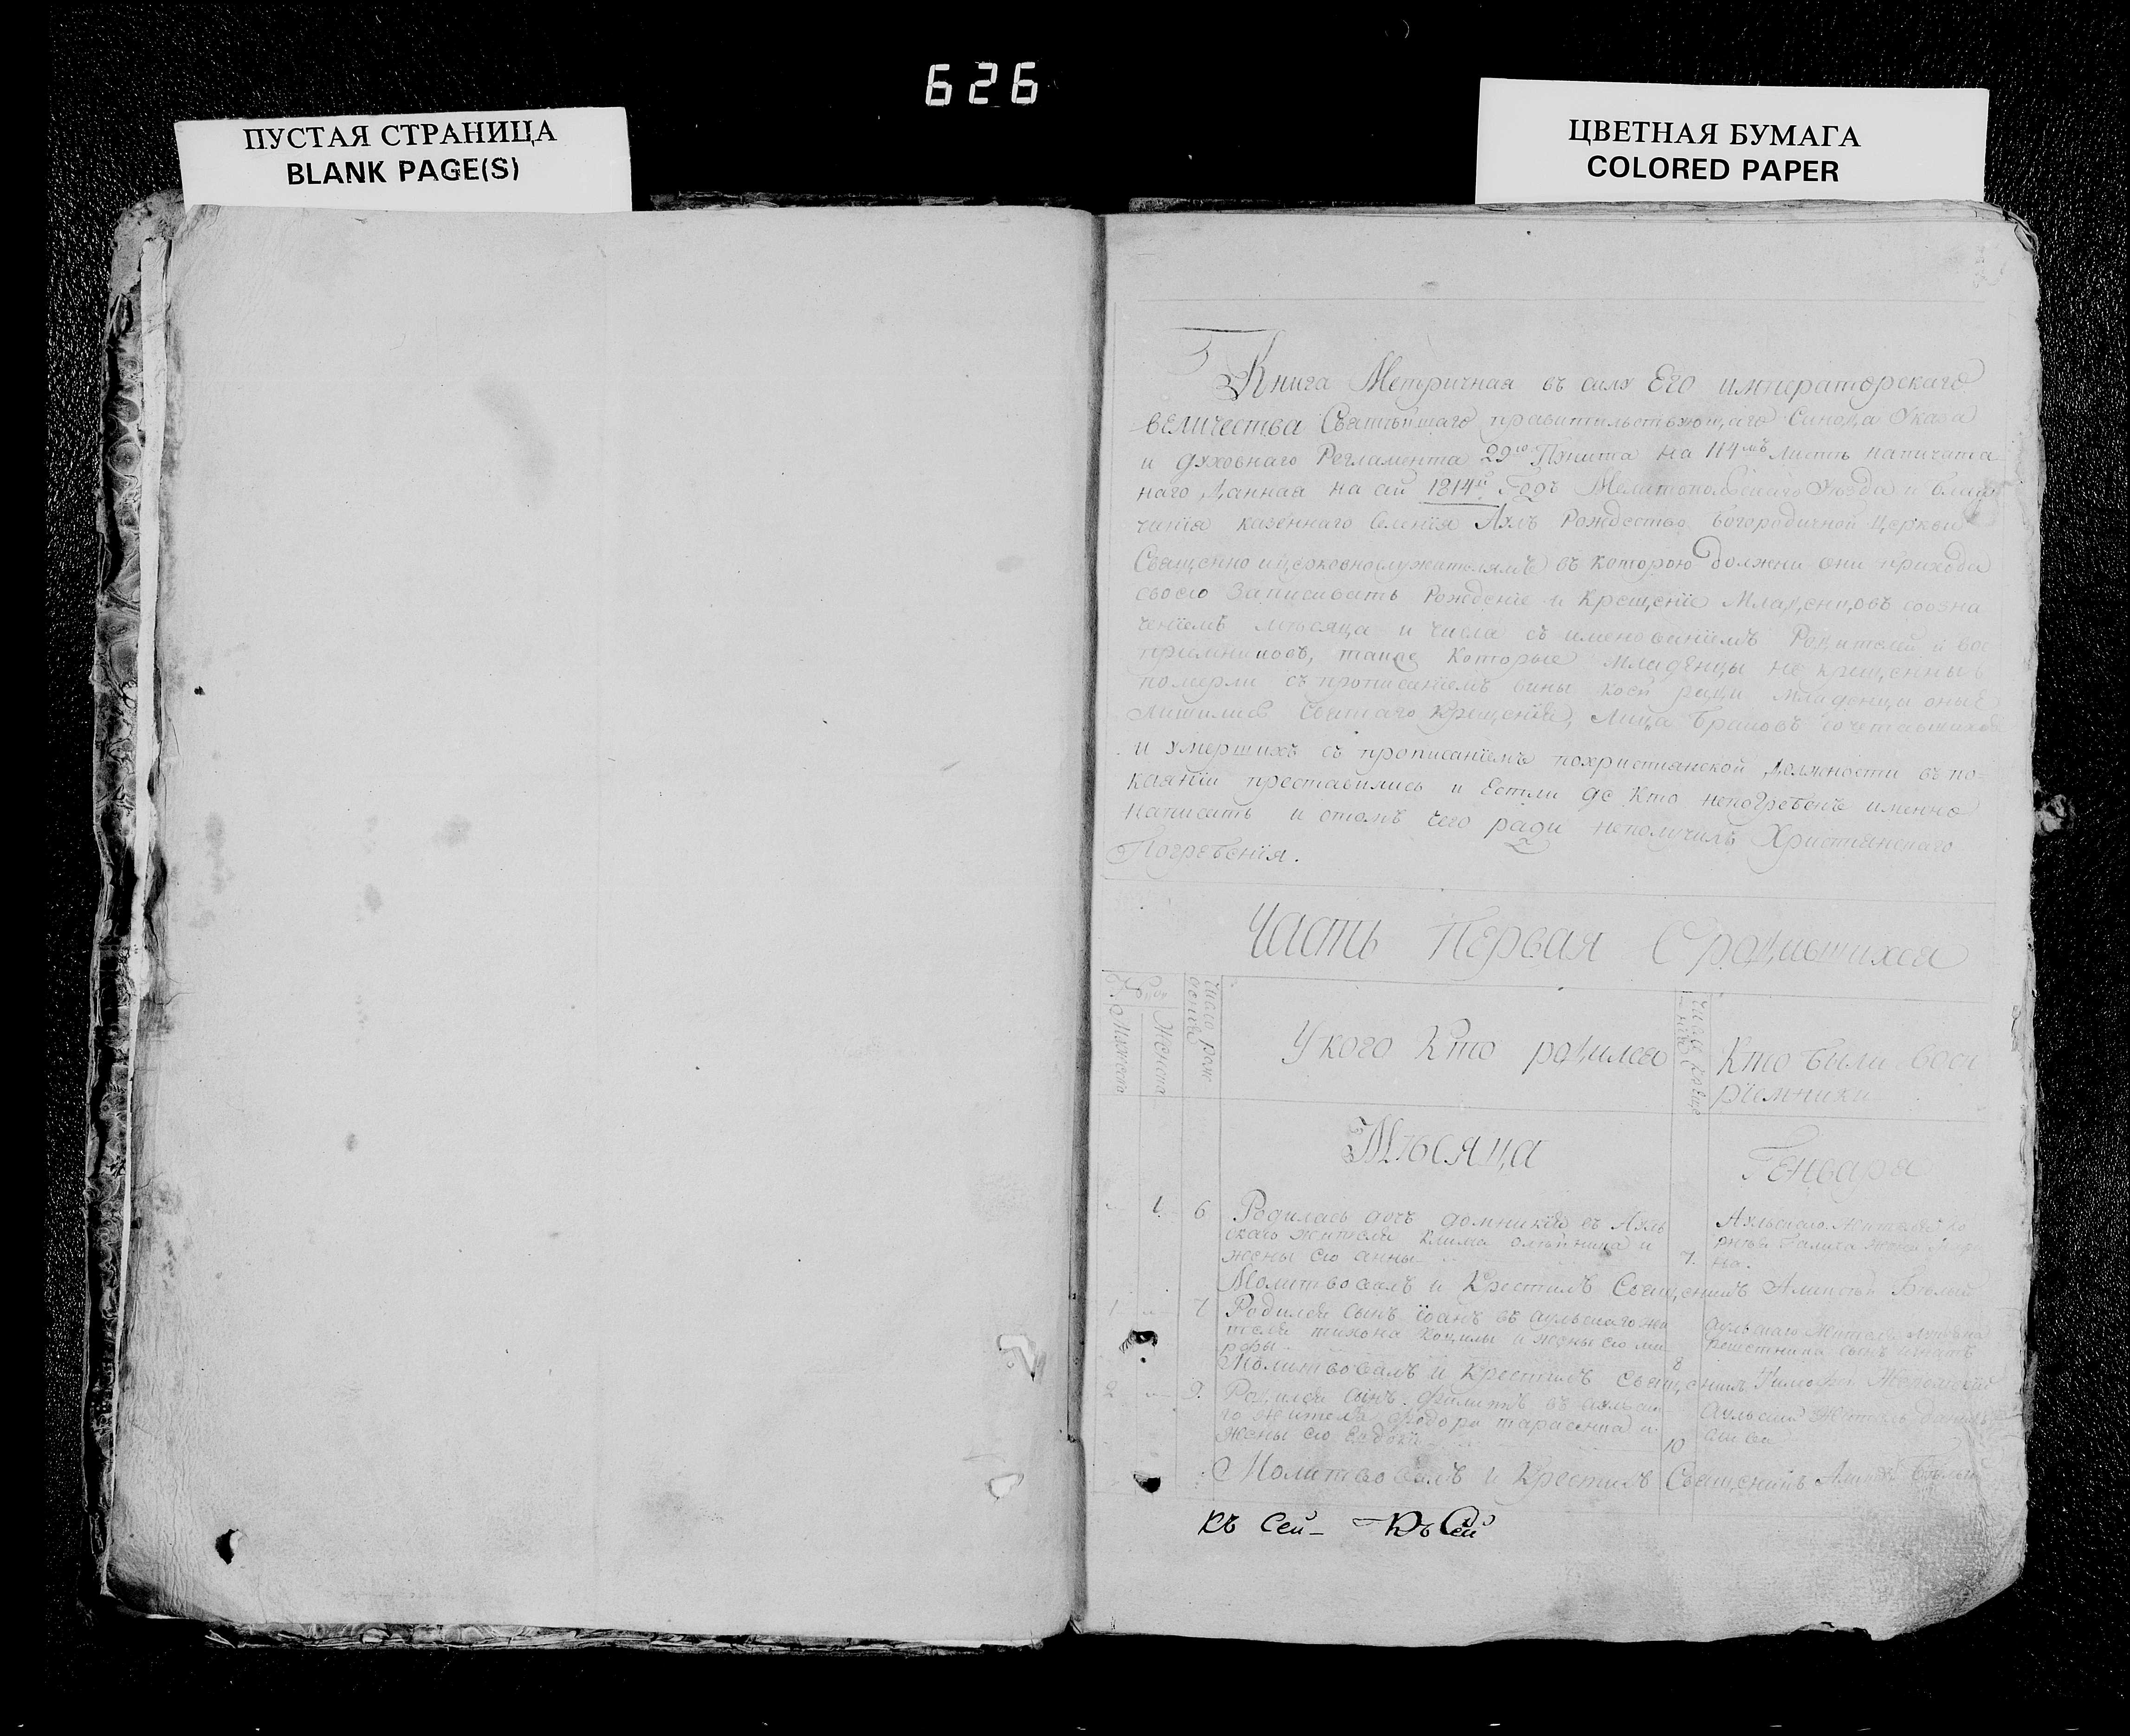 626
ПУСТАЯ СТРАНИЦА
BLANK PAGE(S)
ЦВЕТНАЯ БУМАГА
COLORED PAPER
Книга Метричная въ силу Его императорскаго
величества Святѣйшаго правительствующаго Синода Указа
и духовнаго Регламента 29го Пункта на 114мъ листѣ напичата
наго Данная на сей 1814й Годъ Мелитопольскаго Уѣзда и благо
чинія казеннаго Селенія Аулъ Рождество Богородичной Церкви
Священно и церковнослужителямъ въ которою должни они прихода
своего Записивать Рожденіе и Крещеніе Младенцовъ собзна
ченіемъ мѣсяца и числа съ именованіемъ Родителей и вос
приемниковъ, такде Которые младенцы не крещенныѣ
померли съ прописаніемъ вины коей ради младенцы оныѣ
лишились Святаго Крещенія, Лица браковъ сочетавшихся
и умершихъ съ прописаніемъ похристианской должности въ по
каяніи преставились и Естли де Кто непогребенъ именно
написать и отомъ чего ради неполучилъ Христианскаго
Погребенія.
Часть Первая Сродившихся
Мужеска
Женска
Число рож
У кого Кто родился
Кто были вос
риемники
Мѣсяца
Генваря
1 6 Родилась дочь домникія въ Ауль
скаго жителя клима олѣйника и
жены его анны
7.
Аульскаго Жителя
жена
Молитвовалъ и Крестилъ Священникъ Алексѣй Бѣлый
1 7 Родился сынъ іоанъ въ аульскаго жи
теля тихона и жены его ма
рфы
8
аульскаго Жителя
сынъ игнатъ
Молитвовалъ и Крестилъ Священникъ Тимофей
2 9. Родился сынъ филиппъ въ аульска
го жителя федора тарасенка и
жены его Евдокіи
10
Аульскій Житель
Молитвовалъ и Крестилъ Священникъ Алексѣй Бѣлый
къ сей - Къ Сей